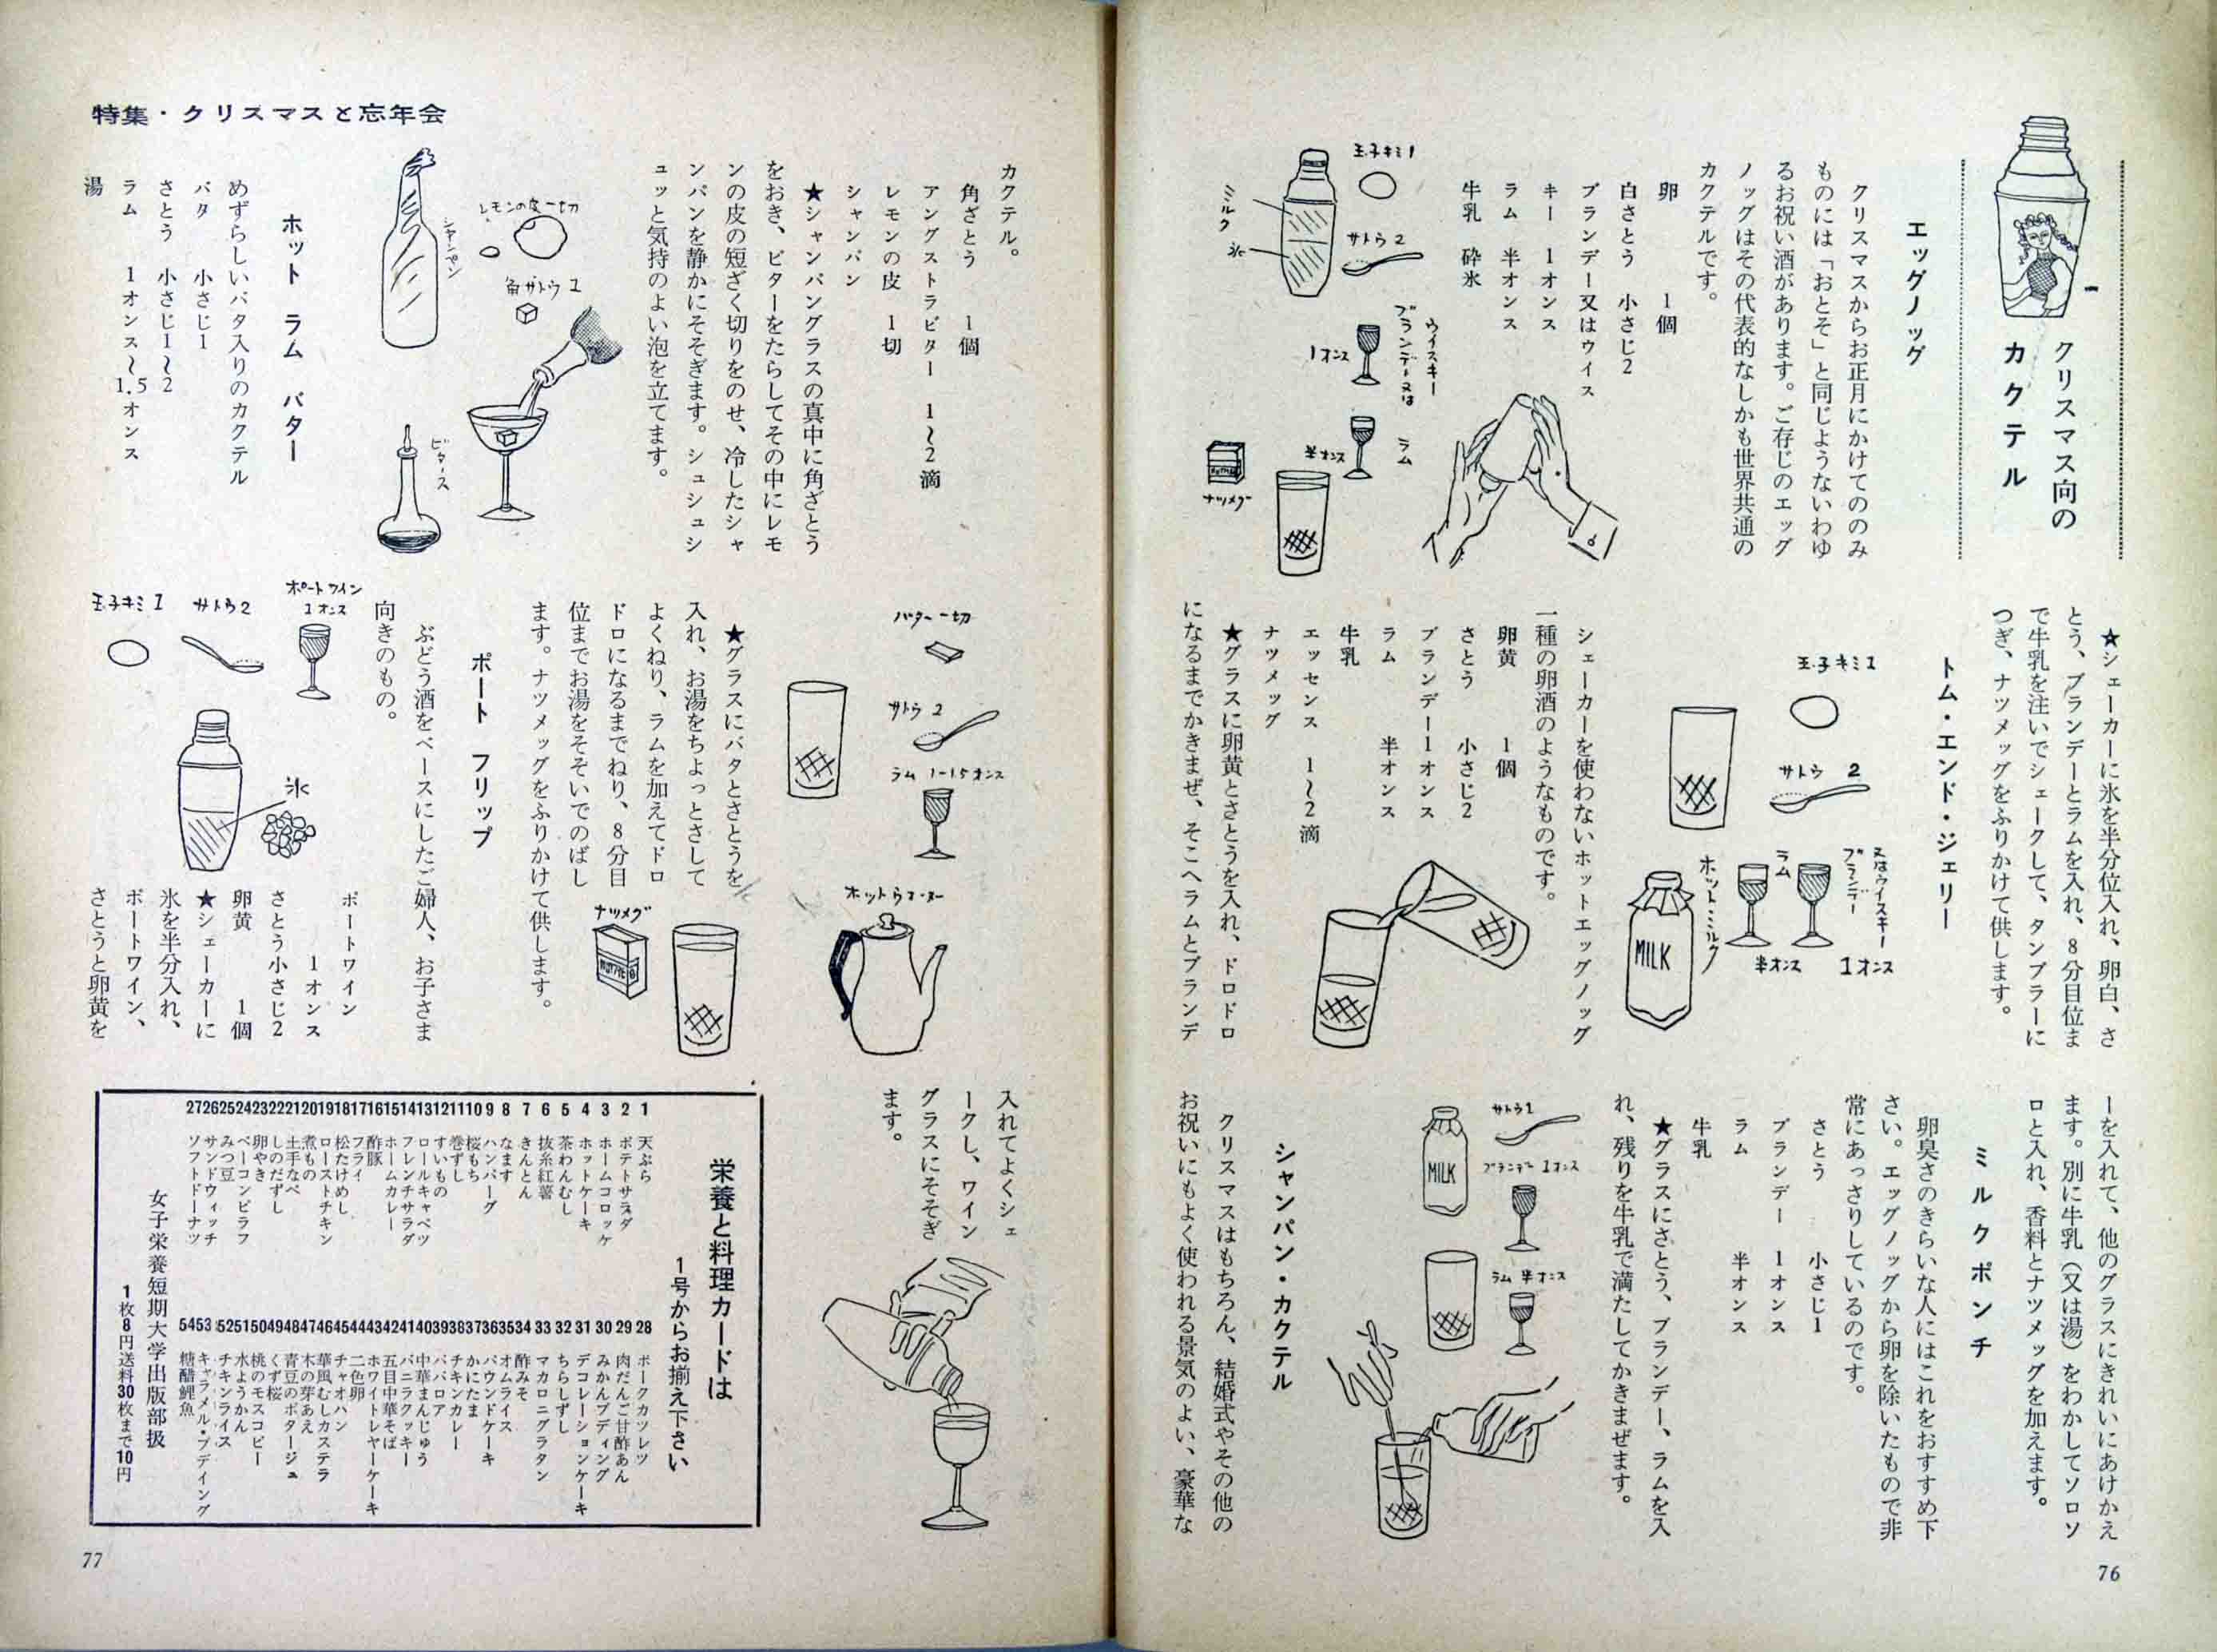 クリスマス向の
カクテル
エッグノッグ
クリスマスからお正月にかけてののみ
ものには「おとそ」と同じようないわゆ
るお祝い酒があります。ご存じのエッグ
ノッグはその代表的なしかも世界共通の
カクテルです。
卵　1個
白さとう　小さじ2
ブランデー又はウイス
キー　1オンス
ラム　半オンス
牛乳　砕氷
玉子キミ1
サトウ2
ミルク
氷
ウイスキー
ブランデー又は
1オンス
ラム
半オンス
ナツメグ
★シェーカーに氷を半分位入れ、卵白、さ
とう、ブランデーとラムを入れ、8分目位ま
で牛乳を注いでシェークして、タンブラーに
つぎ、ナツメッグをふりかけて供します。
トム・エンド・ジェリー
玉子キミ1
サトウ 2
又はウイスキー
ブランデー
1オンス
ラム
半オンス
ホットミルク
MILK
シェーカーを使わないホットエッグノッグ
一種の卵酒のようなものです。
卵黄　1個
さとう　小さじ2
ブランデー1オンス
ラム　半オンス
牛乳
エッセンス　1〜2滴
ナツメッグ
★グラスに卵黄とさとうを入れ、ドロドロ
になるまでかきまぜ、そこへラムとブランデ
ーを入れて、他のグラスにきれいにあけかえ
ます。別に牛乳（又は湯）をわかしてソロソ
ロと入れ、香料とナツメッグを加えます。
ミルクポンチ
卵臭さのきらいな人にはこれをおすすめ下
さい。エッグノッグから卵を除いたもので非
常にあっさりしているのです。
さとう　小さじ1
ブランデー　1オンス
ラム　半オンス
牛乳
★グラスにさとう、ブランデー、ラムを入
れ、残りを牛乳で満たしてかきまぜます。
サトウ1
ブランデー 1オンス
MILK
ラム 半オンス
シャンパン・カクテル
クリスマスはもちろん、結婚式やその他の
お祝いにもよく使われる景気のよい、豪華な
76
特集・クリスマスと忘年会
カクテル。
角ざとう　1個
アングストラビター　1〜2滴
レモンの皮　1切
シャンパン
★シャンパングラスの真中に角ざとう
をおき、ビターをたらしてその中にレモ
ンの皮の短ざく切りをのせ、冷したシャ
ンパンを静かにそそぎます。シュシュシ
ュッと気持のよい泡を立てます。
レモンの皮一切
シャンペン
角サトウ1
ビタース
ホット ラム バター
めずらしいバタ入りのカクテル
バタ　小さじ1
さとう　小さじ1〜2
ラム　1オンス〜1.5オンス
湯
バター一切
サトウ 2
ラム 1-1.5オンス
ホットウオーター
ナツメグ
★グラスにバタとさとうを
入れ、お湯をちょっとさして
よくねり、ラムを加えてドロ
ドロになるまでねり、8分目
位までお湯をそそいでのばし
ます。ナツメッグをふりかけて供します。
ポート フリップ
ぶどう酒をベースにしたご婦人、お子さま
向きのもの。
ポートワイン
1オンス
サトウ2
玉子キミ1
氷
ポートワイン
1オンス
さとう小さじ2
卵黄　1個
★シェーカーに
氷を半分入れ、
ポートワイン、
さとうと卵黄を
入れてよくシェ
ークし、ワイン
グラスにそそぎ
ます。
栄養と料理カードは
1号からお揃え下さい
1 天ぷら
2 ポテトサラダ
3 ホームコロッケ
4 ホットケーキ
5 茶わんむし
6 抜糸紅薯
7 きんとん
8 なます
9 ハンバーグ
10 桜もち
11 巻ずし
12 すいもの
13 ロールキャベツ
14 フレンチサラダ
15 ホームカレー
16 酢豚
17 フライ
18 松たけめし
19 ローストチキン
20 煮もの
21 土手なべ
22 しのだずし
23 卵やき
24 ベーコンピラフ
25 みつ豆
26 サンドウィッチ
27 ソフトドーナツ
28 ポークカツレツ
29 肉だんご甘酢あん
30 みかんプディング
31 デコレーションケーキ
32 ちらしずし
33 マカロニグラタン
34 酢みそ
35 オムライス
36 パウンドケーキ
37 かにたま
38 チキンカレー
39 ババロア
40 中華まんじゅう
41 バニラクッキー
42 五目中華そば
43 ホワイトレヤーケーキ
44 二色卵
45 チャオハン
46 華風むしカステラ
47 木の芽あえ
48 青豆のポタージュ
49 くず桜
50 桃のモスコビー
51 水ようかん
52 チキンライス
53 キャラメル・プディング
54 糖醋鯉魚
女子栄養短期大学出版部扱
1枚8円送料30枚まで10円
77